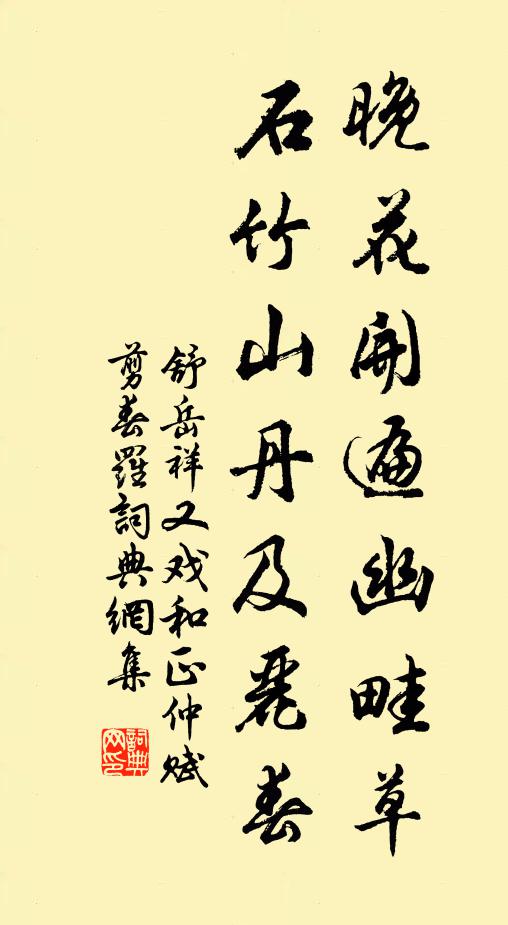 晚花開遍幽畦草
石竹山丹及麗春
舒岳祥又戏和正仲賦
剪春羅詞典網集
詞典网印